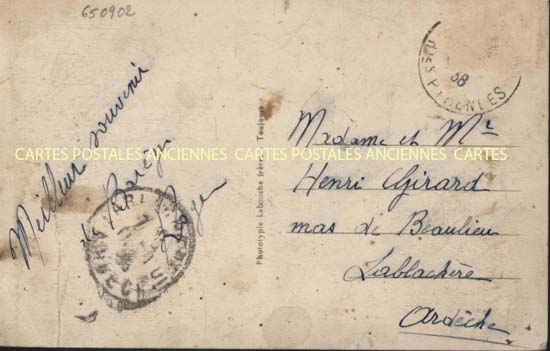 650902
des PYRENEES
38
Meilleur souvenir
de Barèges
Roger
Phototypie Labouche frères Toulouse
CARTES POSTALES ANCIENNES CARTES POSTALES ANCIENNES CARTES
Madame et Mr
Henri Girard
mas de Beaulieu
Lablachère
Ardèche